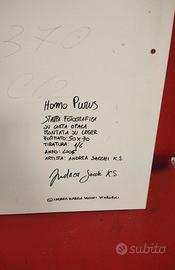 Homo Purus
STAMPA FOTOGRAFICA
SU CARTA OPACA
MONTATA SU LEGER
FORMATO: 50x70
TIRATURA: 1/6
ANNO: 2008
ARTISTA: ANDREA SACCHI K.S.
Andrea Sacchi K.S.
©ANDREA SACCHI
subito